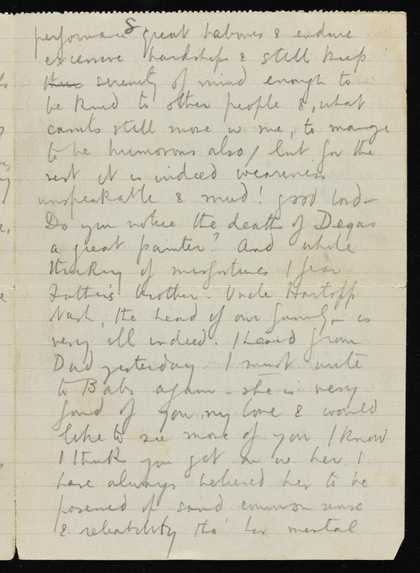 performances great labours & endure
excessive hardships & still keep
their serenity of mind enough to
be kind to other people &, what
counts still more w me, to manage
to be humorous also/ but for the
rest it is indeed weariness
unspeakable & mud! good lord –
Do you notice the death of Degas
a great painter? And while
thinking of misfortunes I fear
Father's brother – Uncle Hartopp
Nash, the head of our family – is
very ill indeed. I heard from
Dad yesterday – I must write
to Babs again – she is very
fond of you my love & would
like to see more of you I know
I think you get on w her I
have always believed her to be
possessed of sound common sense
& reliability tho' her mental